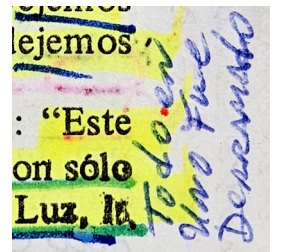 ejemos
lejemos
: “Este
on sólo
Luz. It,
Todo en
Uno fue
Derramado